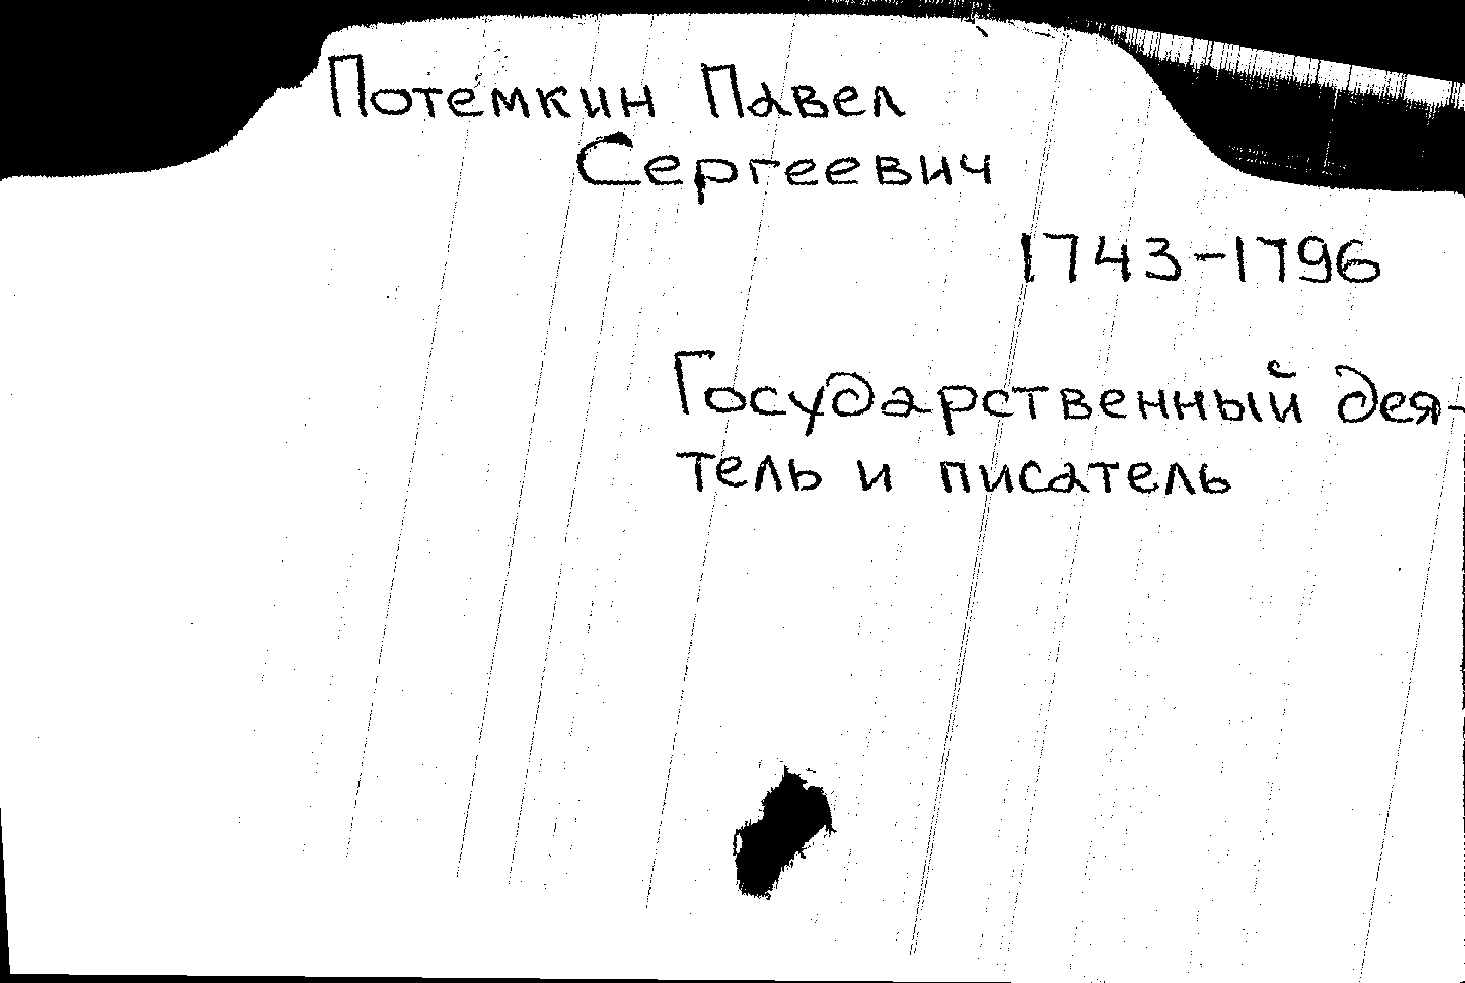 Потемкин Павел
Сергеевич
1743-1796
Государственный дея-
тель и писатель